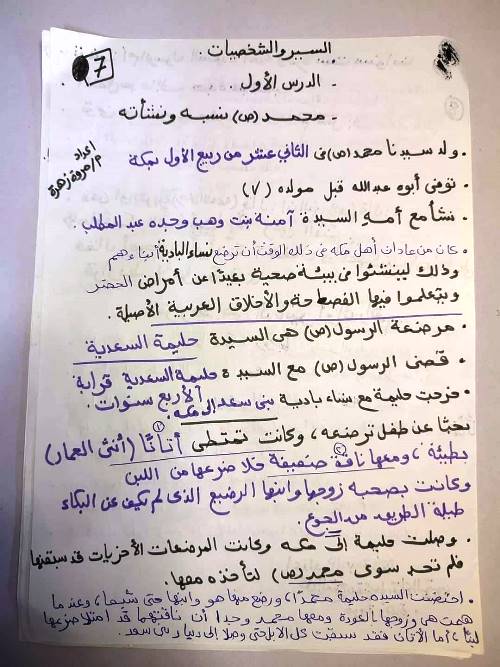 7
السير والشخصيات .
- الدرس الأول
- محمد (ص) نسبه ونشأته
إعداد
م/مروة زهرة
. ولد سيدنا محمد (ص) فى الثاني عشر من ربيع الأول بمكة
. توفى أبوه عبدالله قبل مولده (٧)
. نشأ مع أمه السيدة آمنة بنت وهب وجده عبد المطلب .
. كان من عادات أهل مكه فى ذلك الوقت أن ترضع نساء البادية أبناءهم
وذلك لينشئوا فى بيئة صحية بعيدًا عن أمراض الحضر
ويتعلموا فيها الفصاحة والأخلاق العربية الأصيلة .
. مرضعة الرسول (ص) هى السيدة حليمة السعدية
. قضى الرسول (ص) مع السيدة حليمة السعدية قرابة
الأربع سنوات .
. خرجت حليمة مع نساء بادية بنى سعد إلى مكه
بحثا عن طفل ترضعه ، وكانت تمتطى أتانًا (١) (أنثى الحمار)
بطيئة ، ومعها ناقة (٢) ضعيفة فلا ضرعها من اللبن
وكانت بصحبه زوجها وابنها الرضيع الذى لم يكف عن البكاء
طيلة الطريق من الجوع .
. وصلت حليمة إلى مكه وكانت المرضعات الأخريات قد سبقنها
فلم تجد سوى محمد (ص) لتأخذه معها .
. احتضنت السيده حليمة محمدًا ، ورضع منها هو وابنها حتى شبعا ، وعندما
همت هى وزوجها بالعودة ومعها محمد وجدا أن ناقتهما قد امتلأ ضرعها
لبنًا ، أما الأتان فقد سبقت كل الإبل حتى وصلا إلى ديار بنى سعد .